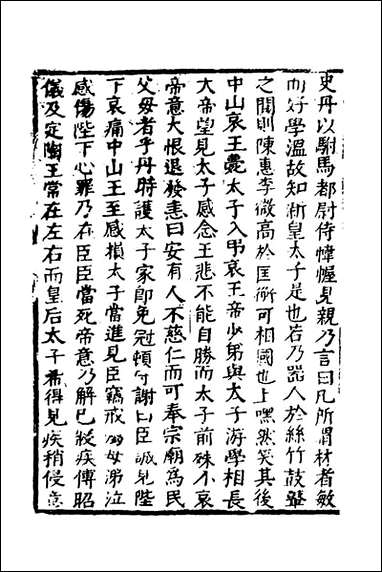 史丹以駙馬都尉侍帷幄見親乃言曰凡所謂材者敏
而好學溫故知新皇太子是也若乃器人於絲竹鼓鼙
之間則陳惠李微高於匡衡可相國也上嘿然笑其後
中山哀王薨太子入弔哀王帝少弟與太子游學相長
大帝望見太子感念王悲不能自勝而太子前殊不哀
帝意大恨退發恚曰安有人不慈仁而可奉宗廟為民
父母者乎丹時護太子家卽免冠頓首謝曰臣誠見陛
下哀痛中山王至感損太子當進見臣竊戒以毋涕泣
感傷陛下心罪乃在臣臣當死帝意乃解已被疾傅昭
儀及定陶王常在左右而皇后太子希得見疾稍侵意